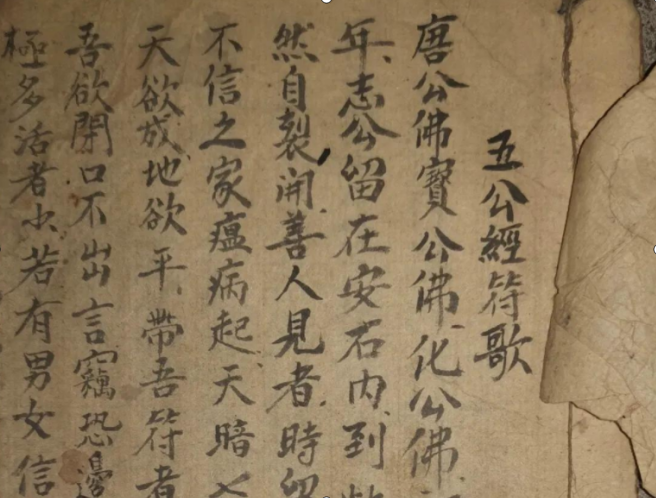 五公經符歌
唐公佛寶公佛化公佛
年志公留在安石内到
然自裂開善人見者時留
不信之家瘟病起天暗七
天欲成地欲平帶吾符者
吾欲閉口不出言竊恐邊
極多活者少若有男女信